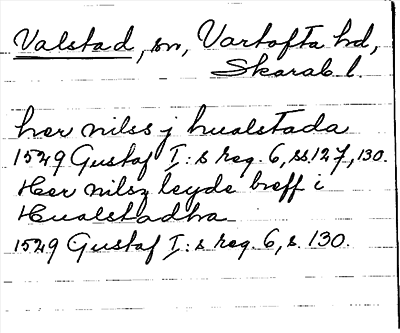 Valstad, sn, Vartofta hd,
Skarab. l.
her nilss j hualstada
1529 Gustaf I:s reg. 6, ss. 127, 130.
Her nilsz leyde breff i
Hualstadha
1529 Gustaf I:s reg. 6, s. 130.